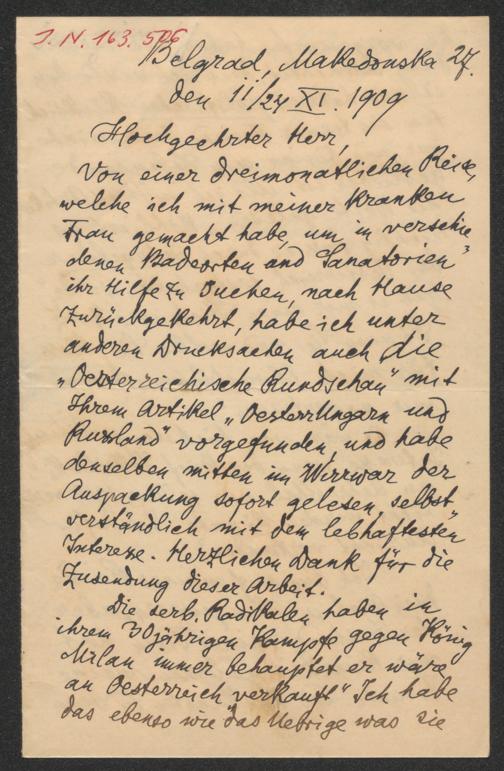 J. N. 163.506
Belgrad, Makedonska 27.
den 11/24 XI. 1909
Hochgeehrter Herr,
Von einer dreimonatlichen Reise,
welche ich mit meiner kranken
Frau gemacht habe, um in verschie
denen Badeorten und Sanatorien
ihr Hilfe zu suchen, nach Hause
zurückgekehrt, habe ich unter
anderen Drucksachen auch die
„Oesterreichische Rundschau" mit
Ihrem Artikel „Oesterr Ungarn und
Russland" vorgefunden, und habe
denselben mitten im Wirrwar der
Auspackung sofort gelesen, selbst
verständlich mit dem lebhaftesten
Interesse. Herzlichen Dank für die
Zusendung dieser Arbeit.
Die serb. Radikalen haben in
ihrem 30jährigen Kampfe gegen König
Milan immer behauptet er wäre
an Oesterreich verkauft" Ich habe
das ebenso wie das Uebrige was sie